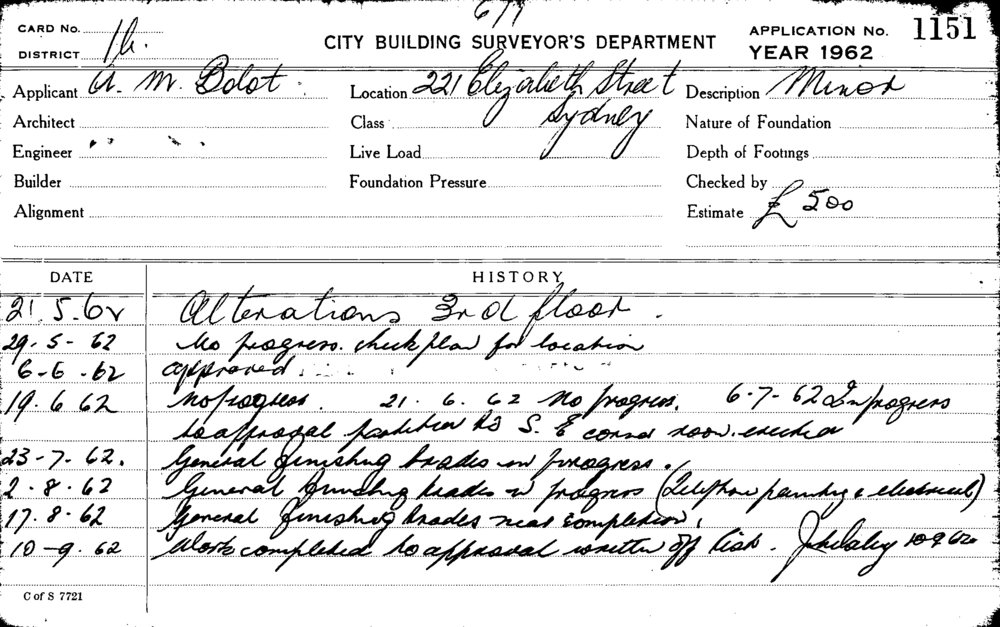 677
CARD No.
DISTRICT 1b.
CITY BUILDING SURVEYOR'S DEPARTMENT
APPLICATION No. 1151
YEAR 1962
Applicant A. M. Bolot Location 221 Elizabeth Street Description Minor
Architect Class Sydney Nature of Foundation
Engineer Live Load Depth of Footings
Builder Foundation Pressure Checked by
Alignment Estimate £ 500
DATE HISTORY
21.5.62 Alterations 3rd floor.
29.5-62 No progress. check plan for location
6-6-62 approved
19.6 62 No progress. 21.6.62 No progress. 6-7-62 In progress
to approval partition to S. E corner room erected
23-7-62. General finishing trades in progress.
2.8.62 General finishing trades in progress (Telephone painting & electrical)
17.8.62 General finishing trades near completion.
10-9.62 Work completed to approval written off list. 10 9 62
C of S 7721